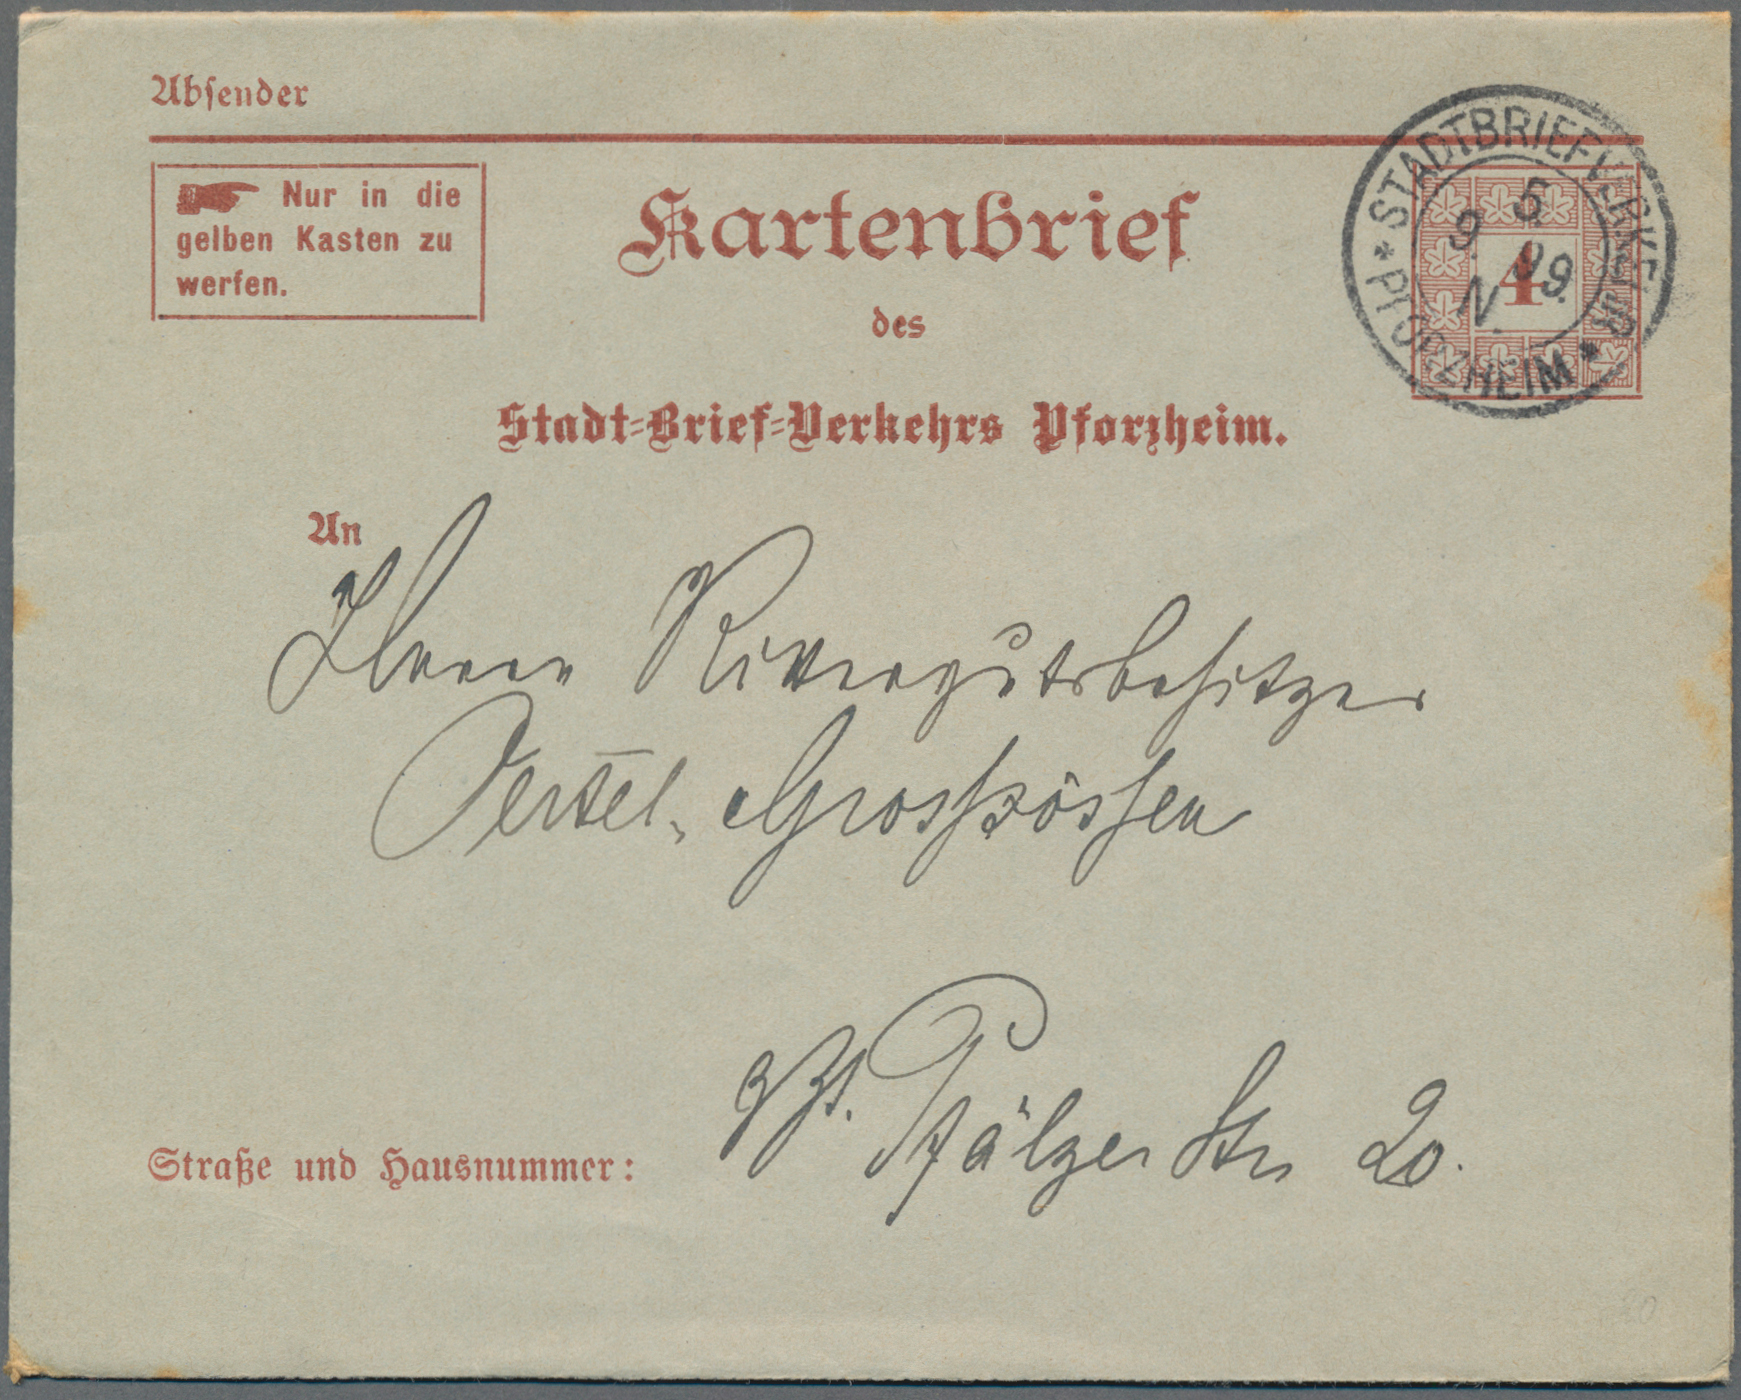 Absender
Nur in die
gelben Kasten zu
werfen.
Kartenbrief
des
Stadt-Brief-Verkehrs Pforzheim.
* STADTBRIEFVERKEHR *
PFORZHEIM
9. 5
99.
N.
4
An
Herrn Rittergutsbesitzer
Oertel, Grosszössen
Pfälzer Str 20.
Straße und Hausnummer: